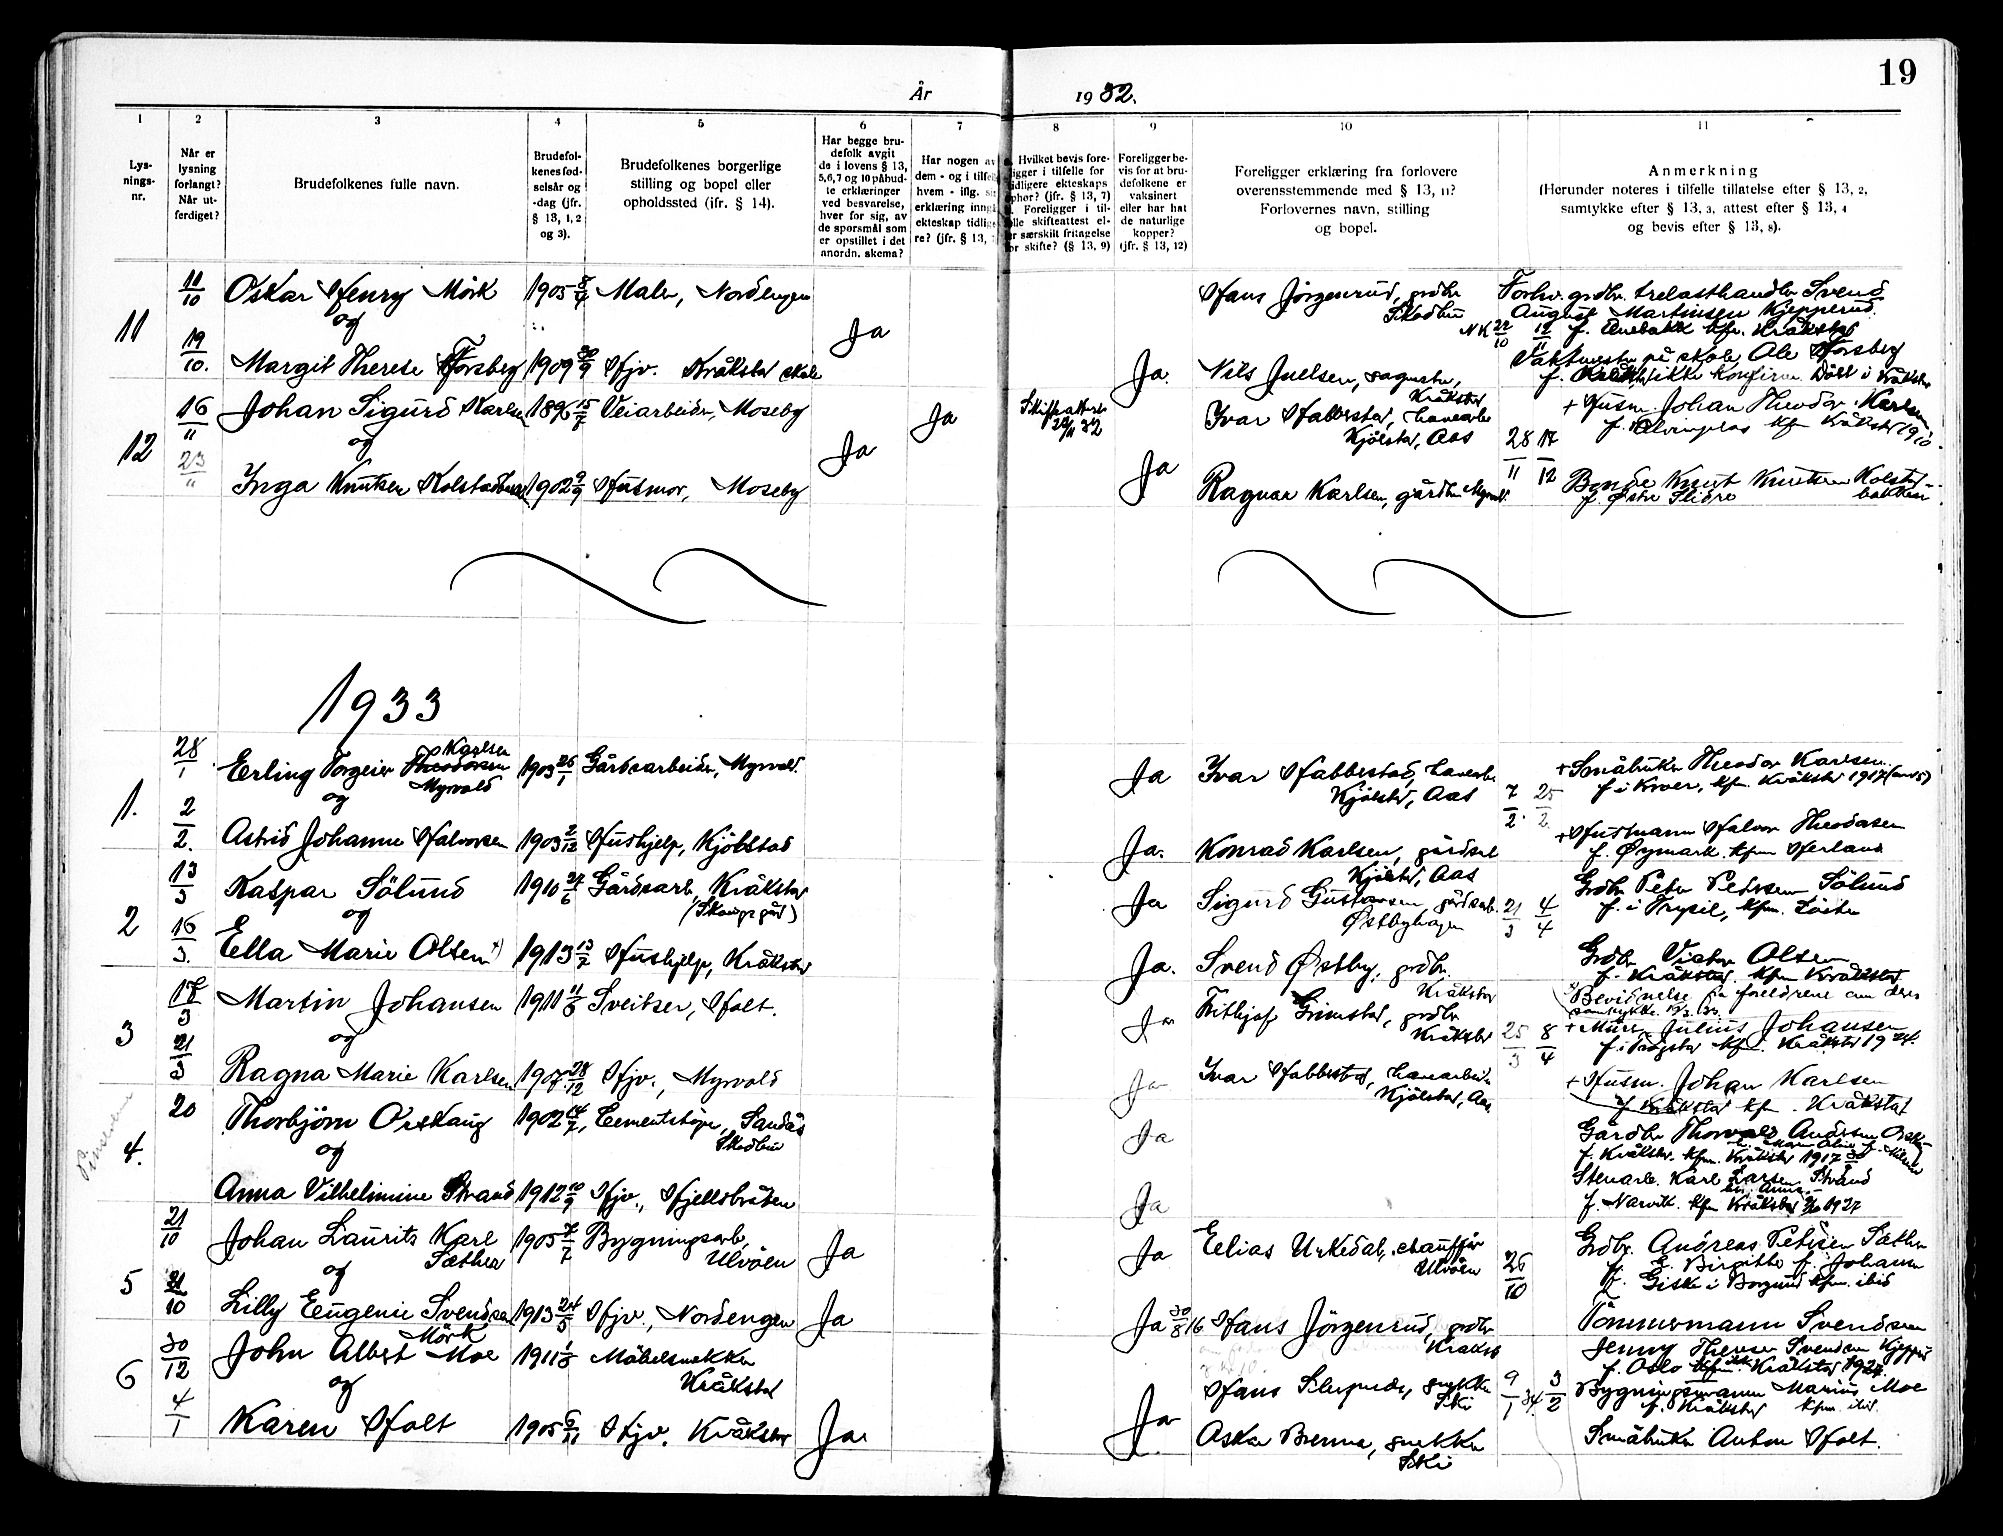 19
År 1932.
1 2 3 4 5 6 7 8 9 10 11
Lys-
nings-
nr.
Når er
lysning
forlangt?
Når ut-
ferdiget?
Brudefolkenes fulle navn.
Brudefol-
kenes fød-
selsår og
-dag (jfr.
§ 13, 1, 2
og 3).
Brudefolkenes borgerlige
stilling og bopel eller
opholdssted (jfr. § 14).
Har begge bru-
defolk avgit
de i lovens § 13,
5,6,7 og 10 påbud-
te erklæringer
ved besvarelse,
hver for sig, av
de spørsmål som
er opstillet i det
anordn. skema?
Har nogen av
dem - og i tilfelle
hvem - iflg. sin
erklæring inngått
ekteskap tidlige-
re? (jfr. § 13,
Hvilket bevis fore-
ligger i tilfelle for
tidligere ekteskaps
ophør? (jfr. § 13, 7)
Foreligger i til-
felle skifteattest el-
ler særskilt fritagelse
for skifte? (§ 13, 9)
Foreligger be-
vis for at bru-
defolkene er
vaksinert
eller har hat
de naturlige
kopper?
(jfr. § 13, 12)
Foreligger erklæring fra forlovere
overensstemmende med § 13, 11?
Forlovernes navn, stilling
og bopel.
Anmerkning
(Herunder noteres i tilfelle tillatelse efter § 13, 2,
samtykke efter § 13, 3, attest efter § 13, 4
og bevis efter § 13, 8).
11 11/10 Oskar Henry Mörk 1905 8/4 Maler, Nordengen Ja Hans Jörgenrud, grdbr. Skodbu
Forhv. grdbr. trelasthandler Svend
August Martinsen Kjepperud
f. Enebakk kfm. Kråkstad
NK 22/10 12/11
og
19/10. Margit Therese Forsberg 1909 30/9 Hjv. Kråkstad skole Ja. Nils Juelsen, sagmester, Kråkstad
Vaktmester på skole Ole Forsberg
12 16/11 Johan Sigurd Karlsen 1896 15/7 Veiarbeider, Moseby Ja Ja Skifteattest Ivar Habbestad, havearb.
Kjölstad, Aas
28/11 17/12
+ Husm. Johan Theodor Karlsen
kfm Kråkstad 1910
og
23/11 Inga Knutsen Kolstadbakken 1902 9/9 Husmor, Moseby Ja Ragnar Karlsen, gårdbr. Myrvold
Bonde Knut Knutsen Kolstad-
bakken
f. Østre Slidre
1933
1. 28/1 Erling Torgeir Theodorsen Karlsen
Myrvold 1903 26/1 Gårdsarbeider, Myrvold. Ja Ivar Habbestad, havearb.
Kjölstad, Aas
7/2 25/2
+ Småbruker Theodor Karlsen
f. i Kroer, kfm. Kråkstad 1917
og
2/2. Astrid Johanne Halvorsen 1903 2/12 Hushjelp, Kjölstad Ja. Konrad Karlsen, gårdsarb
Kjölstad, Aas
+ Husmann Halvor Theodorsen
f. Øymark. kfm
2 13/3 Kaspar Sölund 1910 27/6 Gårdsarb, Kråkstad
(Skaugs gård) Ja Sigurd Gustavsen, gårdsarb.
Østbyhagen
21/3 4/4
Grdbr Peter Petersen Sölund
f. i Trysil, kfm. Löiten
og
16/3. Ella Marie Olsen x) 1913 13/7 Hushjelp, Kråkstad Ja. Svend Østby, grdbr. Kråkstad
Grdbr Victor Olsen
f. Kråkstad kfm Kråkstad
x) Bevidnelse fra foreldrene om deres
samtykke
3 17/3 Martin Johansen 1911 11/8 Sveitser, Holt. Ja Frithjof Grimstad, grdbr
Kråkstad
25/3 8/4
+ Murer Julius Johansen
kfm. Kråkstad 1924.
og
21/3 Ragna Marie Karlsen 1907 28/12 Hjv., Myrvold Ja Ivar Habbestad, havearbeider
Kjölstad, Aas
+ Husm. Johan Karlsen
f Kråkstad kfm. Kråkstad
4. 20 Thorbjörn Orskaug 1902 14/7, Cementstöper, Sandås
Skodbu Ja
Gårdbr Thorvald Andersen
f. Kråkstad. kfm. Kråkstad 1917
og
Anna Vilhelmine Strand 1912 10/9 Hjv., Hjellsbråten Ja
Stenarb. Karl Larsen Strand
f. Narvik. kfm Kråkstad 1927
5 21/10 Johan Laurits Karl
Sæther 1905 7/7 Bygningsarb, Ulvöen Ja Ja Elias Urkedal, chauffør
Ulvöen
26/10
Grdbr. Andreas Petersen Sæther
Birgitte f. Johansen
f. Giske i Borgund kfm. ibid
og
21/10 Lilly Eugenie Svendsen 1913 24/5 Hjv., Nordengen Ja Ja 30/8 16 Hans Jörgenrud, grdbr
Kråkst
Tömmermann Svendsen
Jenny Therese Svendsen
f. Oslo Kråkstad 1927.
6 30/12 John Albert Mörk Moe 1911 Möbelsnekker
Kråkstad Hans snekker
Ski
9/1 34. 3/2
Bygningsmann Marius Moe
f. Kråkstad kfm. ibid.
og
4/1 Karen Holt 1905 Hjv. Kråkstad Ja Ja Asker Brenna, snekker
Ski
Småbruker Anton Holt.